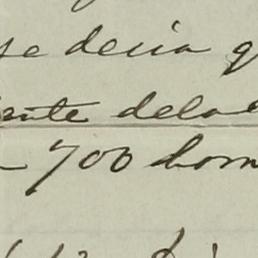 se decia q
ente delae
700 hom